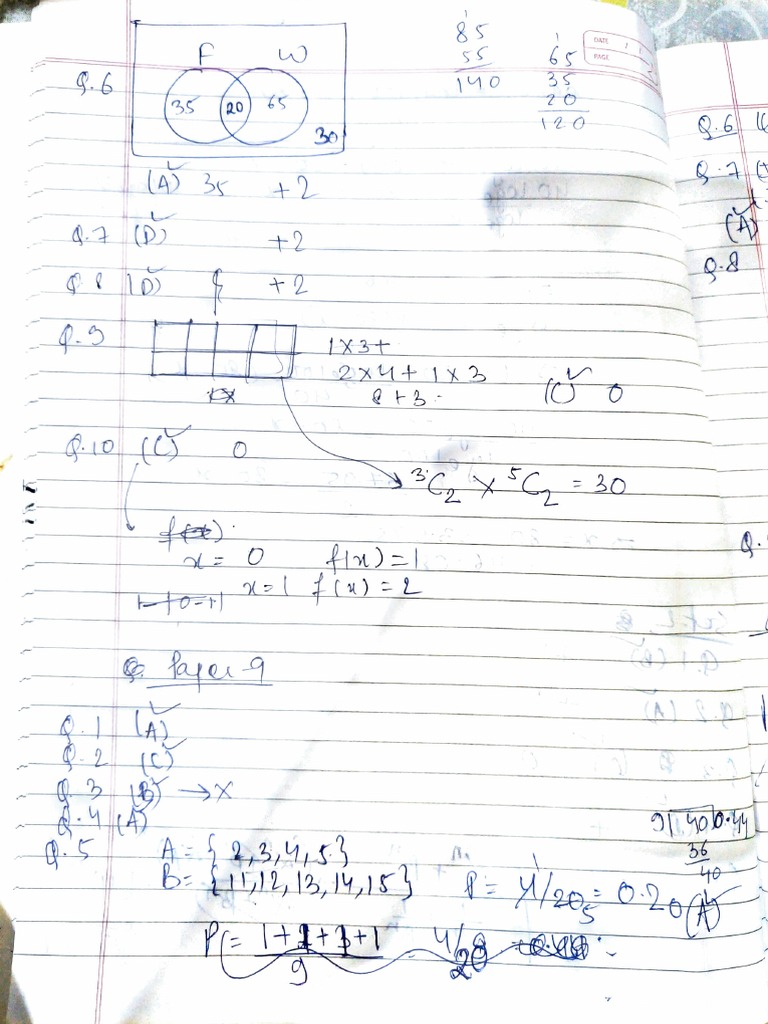 DATE
PAGE
F W
Q.6
35 20 65
30
85
55
140
65
35
20
120
(A) 35 +2
Q.7 (D) +2
Q.8 (D) +2
Q.9
1×3+
2×4+1×3
8+3
(C) 0
Q.10 (C) 0
³C₂ × ⁵C₂ = 30
f(x)
x = 0 f(x) = 1
x = 1 f(x) = 2
Paper-9
Q.1 (A)
Q.2 (C)
Q.3 (B) → ×
Q.4 (A)
Q.5 A = {2,3,4,5}
B = {11,12,13,14,15}
P = 4/20 = 0.20 (A)
5
1
9 40 0.44
36
40
P = 1+1+1+1
9
4/
20
Q.6
Q.7
(A)
Q.8